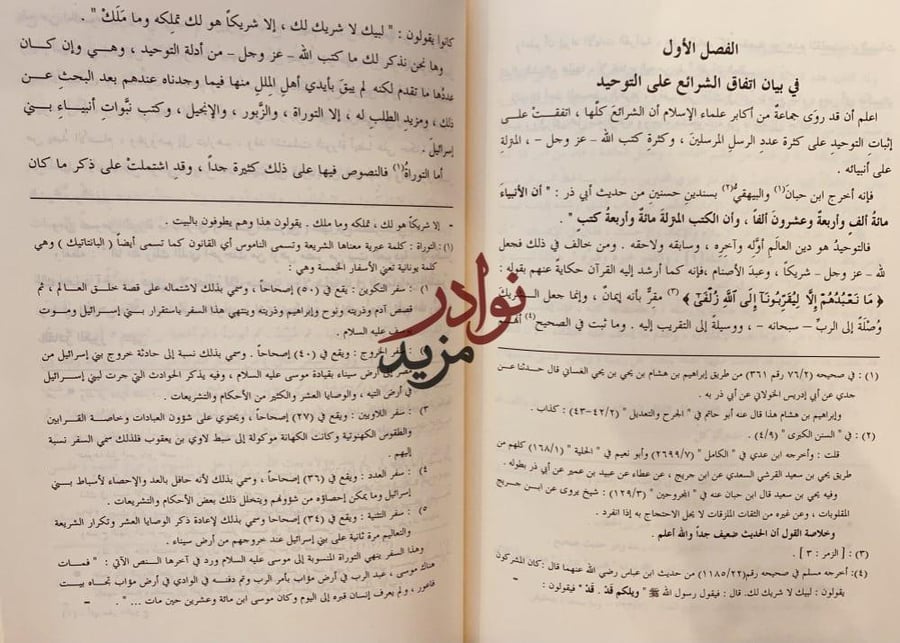 الفصل الأول
في بيان اتفاق الشرائع على التوحيد
اعلم أن قد روَى جماعةٌ من أكابر علماء الإسلام أن الشرائعَ كلَّها ، اتفقتْ على
إثباتِ التوحيدِ على كثرةِ عددِ الرسلِ المرسلينَ ، وكثرةِ كتب الله – عز وجل – ، المنزلةِ
على أنبيائه .
فإنه أخرج ابن حبانَ(١) والبيهقيُّ(٢) بسندينِ حسنينِ من حديث أبي ذر : " أن الأنبياءَ
مائةُ ألفٍ وأربعةٌ وعشرونَ ألفاً ، وأن الكتب المنزلةَ مائةٌ وأربعةُ كتبٍ " .
فالتوحيدُ هو دين العالَمِ أوَّلِه وآخرِه ، وسابقه ولاحقه . ومن خالف في ذلك فجعل
لله – عز وجل – شريكاً ، وعبدَ الأصنام ،فإنه كما أرشد إليه القرآن حكايةً عنهم بقوله :
﴿ مَا نَعْبُدُهُمْ إِلَّا لِيُقَرِّبُونَآ إِلَى ٱللَّهِ زُلْفَىٰٓ ﴾ (٣) مقرٌّ بأنه إيمانٌ ، وإنما جعل الشريك
وُصْلَةً إلى الربِّ – سبحانه – ، ووسيلةً إلى التقريب إليه . وما ثبت في الصحيح(٤)
(١) : في صحيحه (٧٦/٢ رقم ٣٦١) من طريق إبراهيم بن هشام بن يحي بن يحي الغساني قال حدثنا عن
جدي عن أبي إدريس الخولاني عن أبي ذر به .
وإبراهيم بن هشام هذا قال عنه أبو حاتم في " الجرح والتعديل " (٤٢/٢-٤٣) : كذاب .
(٢) : في " السنن الكبرى " (٤/٩) .
قلت : وأخرجه ابن عدي في " الكامل " (٢٦٩٩/٧) وأبو نعيم في " الحلية " (١٦٨/١) كلهم من
طريق يحي بن سعيد القرشي السعدي عن ابن جريج ، عن عطاء عن عبيد بن عمير عن أبي ذر بطوله .
وفيه يحي بن سعيد قال ابن حبان عنه في " المجروحين " (١٢٩/٣) : شيخ يروى عن ابن جريج
المقلوبات ، وعن غيره من الثقات الملزقات لا يحل الاحتجاج به إذا انفرد .
وخلاصة القول أن الحديث ضعيف جداً والله أعلم .
(٣) : [ الزمر : ٣ ] .
(٤): أخرجه مسلم في صحيحه رقم(١١٨٥/٢٢) من حديث ابن عباس رضي الله عنهما قال :كان المشركون
يقولون : لبيك لا شريك لك. قال : فيقول رسول الله ﷺ " ويلكم قَدْ . قَدْ " فيقولون :
كانوا يقولون : " لبيك لا شريك لك ، إلا شريكاً هو لك تملِكه وما مَلَكْ " .
وها نحن نذكر لك ما كتب الله – عز وجل – من أدلة التوحيد ، وهي وإن كان
عددُها ما تقدم لكنه لم يبقَ بأيدي أهل الملل منها فيما وجدناه عندهم بعد البحثِ عن
ذلك ، ومزيدِ الطلب له ، إلا التوراة ، والزَّبور ، والإنجيل ، وكتب نبوَّات أنبياء بني
إسرائيل .
أما التوراةُ(١) فالنصوص فيها على ذلك كثيرة جداً ، وقد اشتملتْ على ذكر ما كان
- إلا شريكاً هو لك ، تملكه وما ملك . يقولون هذا وهم يطوفون بالبيت .
(١): التوراة : كلمة عبرية معناها الشريعة وتسمى الناموس أي القانون كما تسمى أيضاً ( البانتاتيك ) وهي
كلمة يونانية تعني الأسفار الخمسة وهي :
١) : سفر التكوين : يقع في (٥٠) إصحاحاً ، وسمي بذلك لاشتماله على قصة خلق العالم ، ثم
قصص آدم وذريته ونوح وإبراهيم وذريته وينتهي هذا السفر باستقرار بني إسرائيل وموت
يوسف عليه السلام .
: سفر الخروج : ويقع في (٤٠) إصحاحاً . وسمي بذلك نسبة إلى حادثة خروج بني إسرائيل من
أرض سيناء بقيادة موسى عليه السلام ، وفيه يذكر الحوادث التي جرت لبني إسرائيل
في أرض التيه ، والوصايا العشر والكثير من الأحكام والتشريعات .
٣) : سفر اللاويين : ويقع في (٢٧) إصحاحاً ، ويحتوي على شؤون العبادات وخاصة القرابين
والطقوس الكهنوتية وكانت الكهانة موكولة إلى سبط لاوي بن يعقوب فلذلك سمي السفر نسبة
إليهم .
٤) : سفر العدد : ويقع في (٣٦) إصحاحاً ، وسمي بذلك لأنه حافل بالعد والإحصاء لأسباط بني
إسرائيل وما يمكن إحصاؤه من شؤونهم ويتخلل ذلك بعض الأحكام والتشريعات .
٥) : سفر التثنية : ويقع في (٣٤) إصحاحا وسمي بذلك لإعادة ذكر الوصايا العشر وتكرار الشريعة
والتعاليم مرة ثانية على بني إسرائيل عند خروجهم من أرض سيناء .
وهذا السفر ينهي التوراة المنسوبة إلى موسى عليه السلام ورد في آخرها النص الآتي : " فمات
هناك موسى ، عبد الرب في أرض مؤاب بأمر الرب وتم دفنه في الوادي في أرض مؤاب تجاه بيت
فاغور ، ولم يعرف إنسان قبره إلى اليوم وكان موسى ابن مائة وعشرين حين مات ... " .
نوادر
مزيد